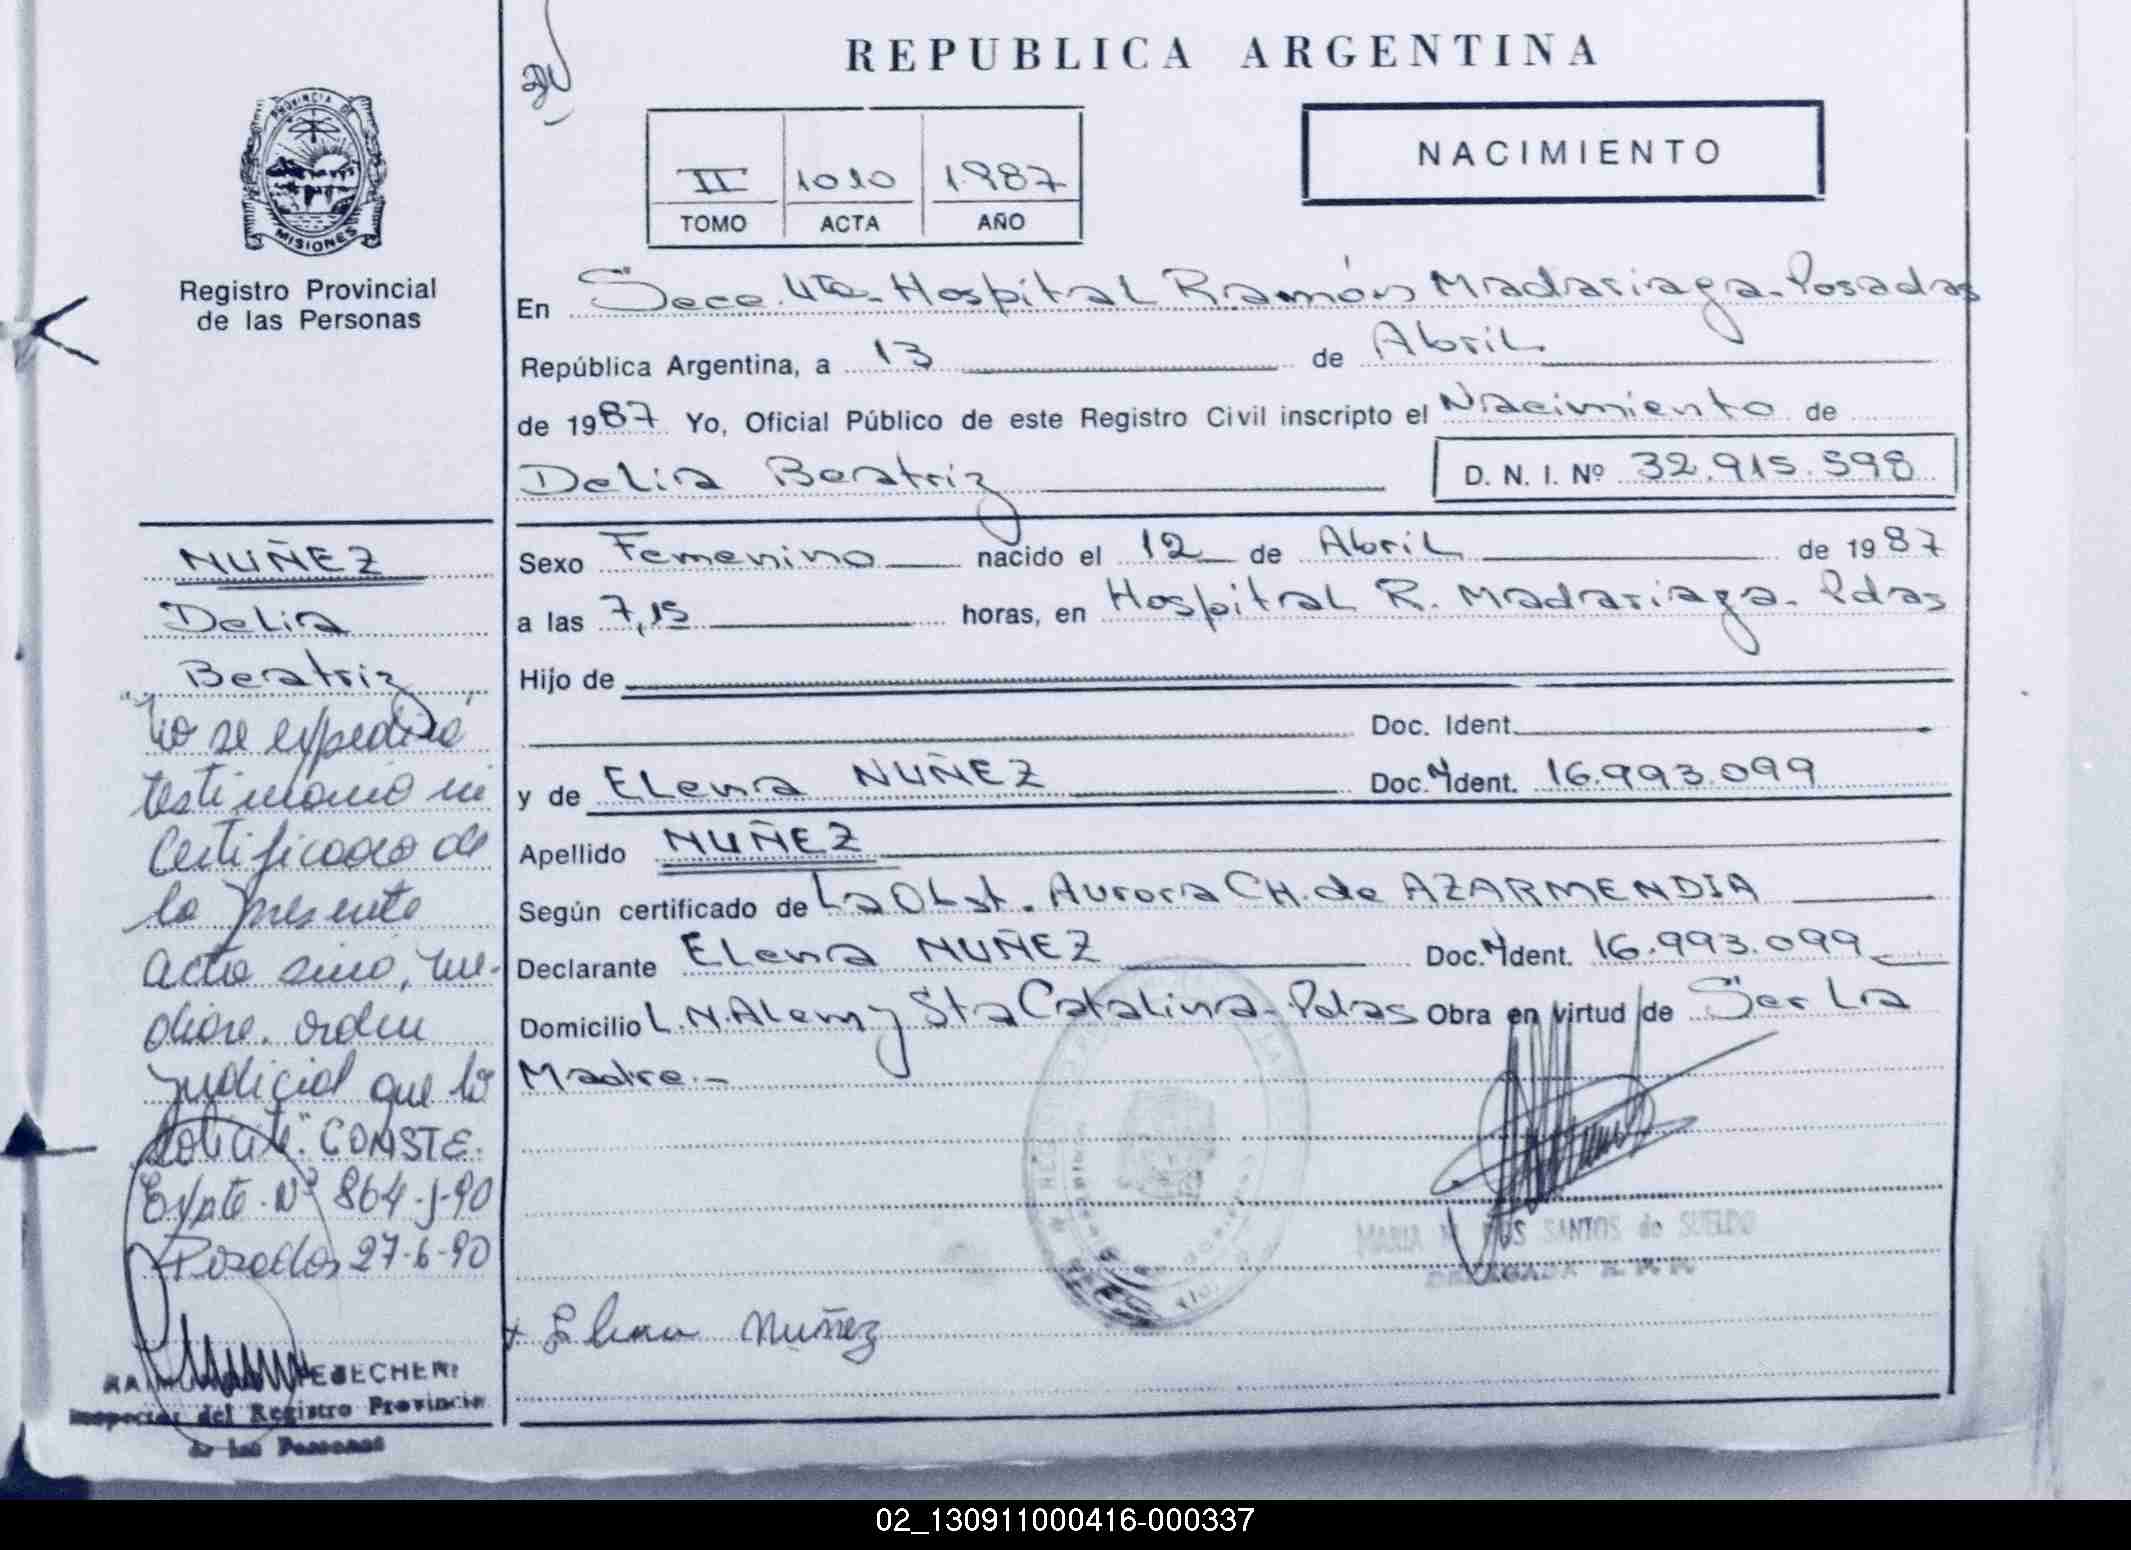 REPUBLICA ARGENTINA
NACIMIENTO
II 1010 1987
TOMO ACTA AÑO
PROVINCIA DE
MISIONES
Registro Provincial
de las Personas
En Secc. 4ta. Hospital Ramón Madariaga. Posadas
República Argentina, a 13 de Abril
de 1987 Yo, Oficial Público de este Registro Civil inscripto el Nacimiento de
Delia Beatriz D. N. I. Nº 32.915.598
Sexo Femenino nacido el 12 de Abril de 1987
a las 7,15 horas, en Hospital R. Madariaga. Pdas
Hijo de
Doc. Ident.
y de Elena NUÑEZ Doc. Ident. 16.993.099
Apellido NUÑEZ
Según certificado de La Obst. Aurora CH. de AZARMENDIA
Declarante Elena NUÑEZ Doc. Ident. 16.993.099
Domicilio L.N.Alem y Sta Catalina. Pdas Obra en virtud de Ser La
Madre.-
MARIA DOS SANTOS de SUELDO
DELEGADA
Elena Nuñez
NUÑEZ
Delia
Beatriz
"No se expedirá
testimonio ni
Certificado de
la presente
acta sino, me-
diare. orden
judicial que lo
solicite". CONSTE.
Expte. Nº 864-J-90
Posadas 27-6-90
Inspector del Registro Provincial
de las Personas
02_130911000416-000337